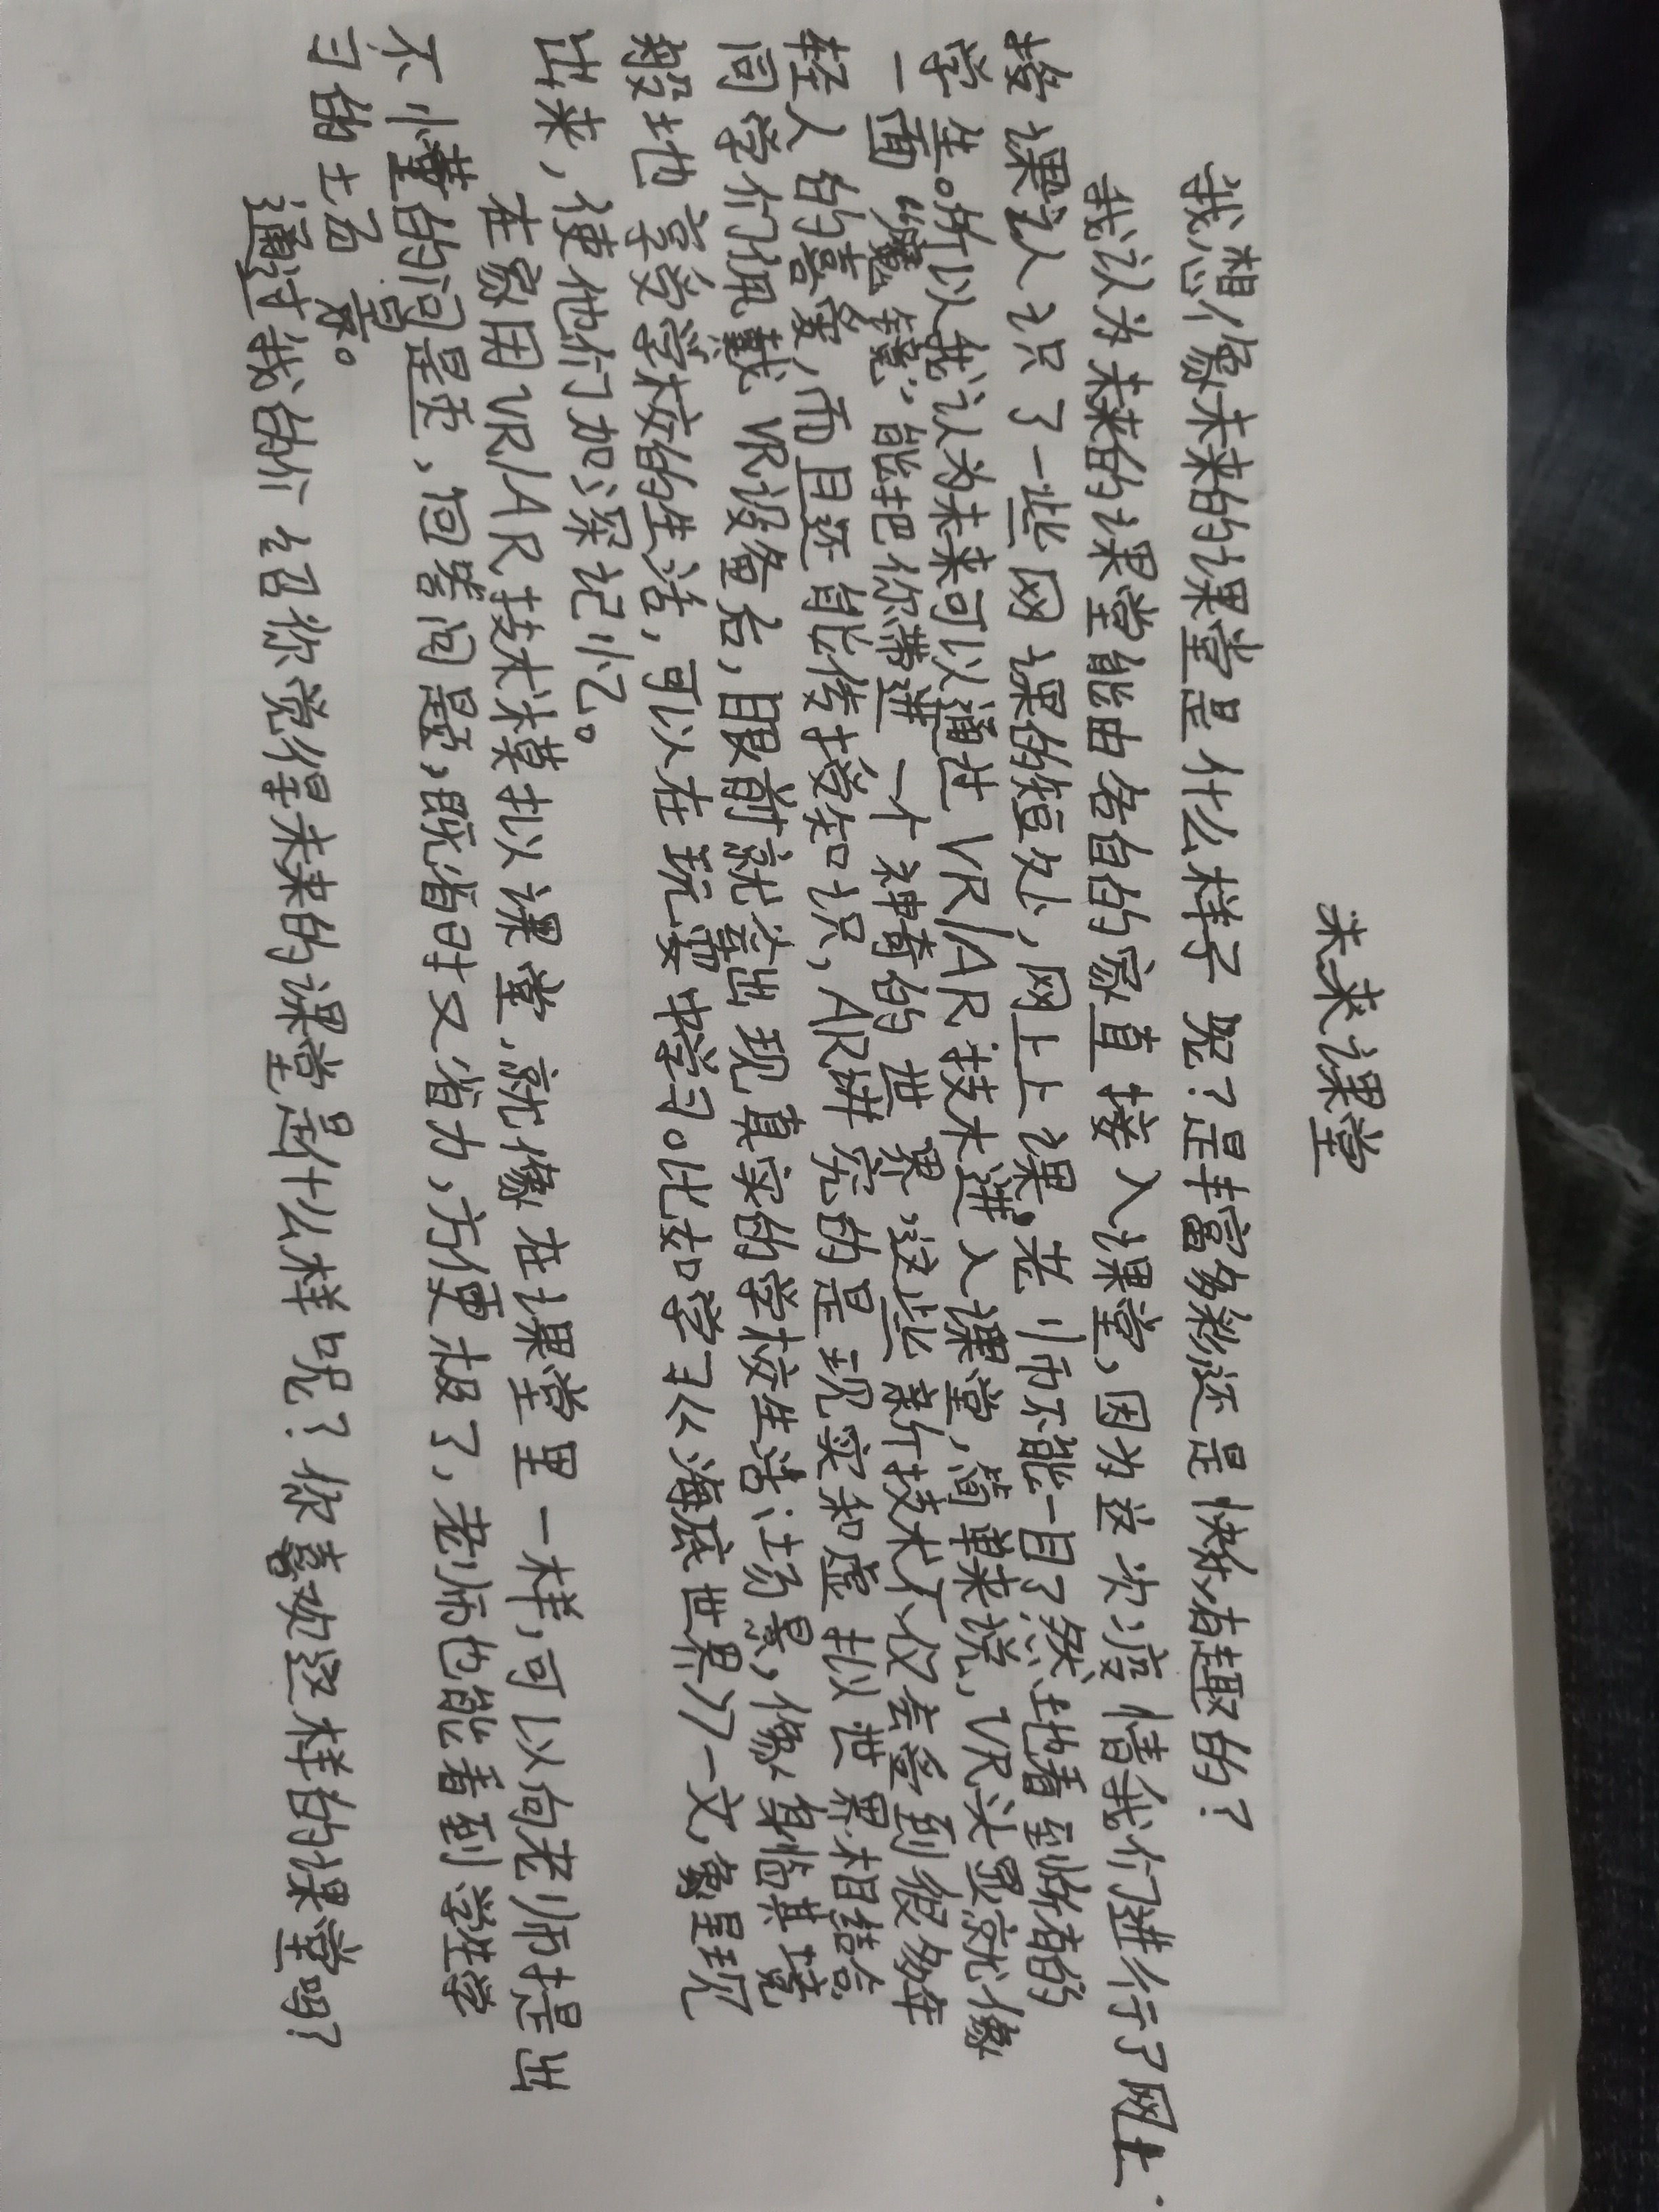 未来课堂
我想像未来的课堂是什么样子呢？是丰富多彩还是快乐有趣的？
我认为未来的课堂能由各自的家直接入课堂，因为这次疫情我们进行了网上
授课认识了一些网课的短处，网上上课，老师不能一目了然地看到所有的
学生。所以我认为未来可以通过VR/AR技术进入课堂，简单来说，VR头显就像
一面“魔镜”，能把你带进一个神奇的世界，这些新技术不仅会受到很多年
轻人的喜爱，而且还能传授知识，AR讲究的是现实和虚拟世界相结合。
同学们佩戴VR设备后，眼前就会出现真实的学校生活场景，像身临其境
般地享受学校的生活，可以在玩耍中学习。比如学习《海底世界》一文，象呈现
出来，使他们加深记忆。
在家用VR/AR技术模拟课堂，就像在课堂里一样，可以向老师提出
不懂的问题，回答问题，既省时又省力，方便极了，老师也能看到学生学
习的士气高。
通过我的介绍你觉得未来的课堂是什么样呢？你喜欢这样的课堂吗？